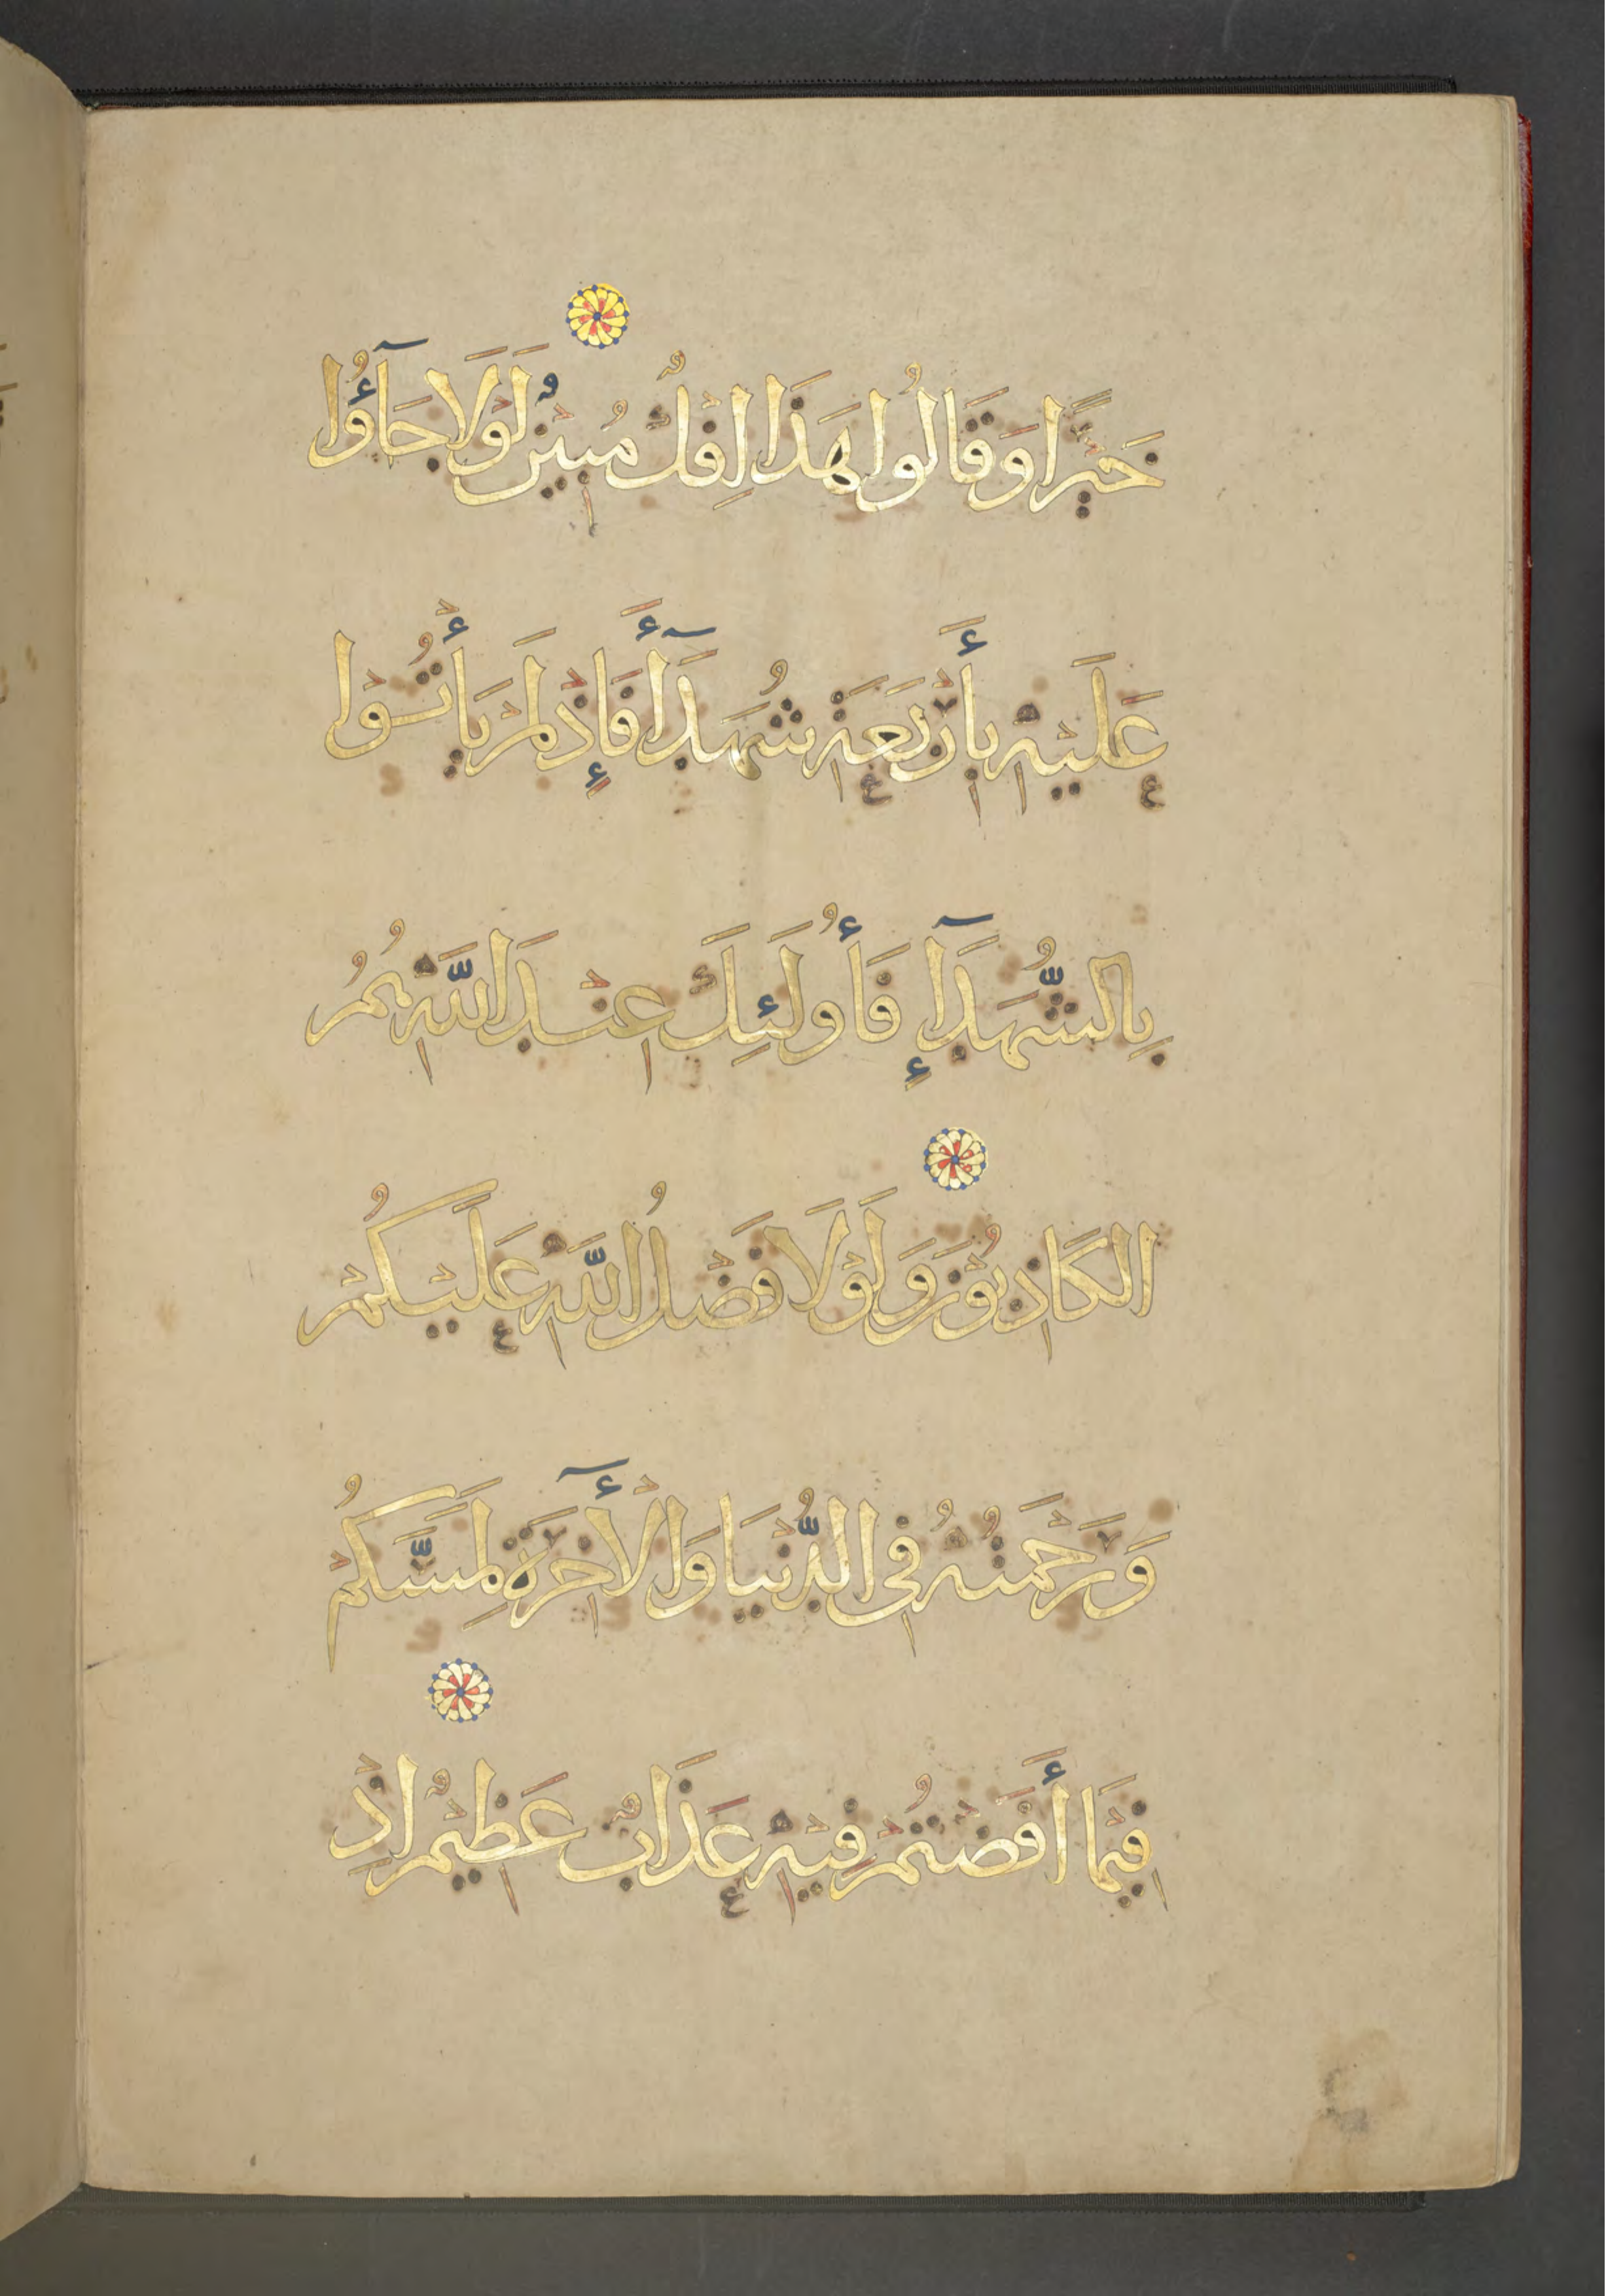 خَيْرًا وَقَالُوا هَذَا إِفْكٌ مُبِينٌ لَوْلَا جَآؤُا
عَلَيْهِ بِأَرْبَعَةِ شُهَدَآءَ فَإِذْ لَمْ يَأْتُوا
بِالشُّهَدَآءِ فَأُولَئِكَ عِنْدَ اللَّهِ هُمُ
الكَاذِبُونَ وَلَوْلَا فَضْلُ اللَّهِ عَلَيْكُمْ
وَرَحْمَتُهُ فِي الدُّنْيَا وَالْأَخِرَةِ لَمَسَّكُمْ
فِيمَا أَفَضْتُمْ فِيهِ عَذَابٌ عَظِيمٌ إِذْ